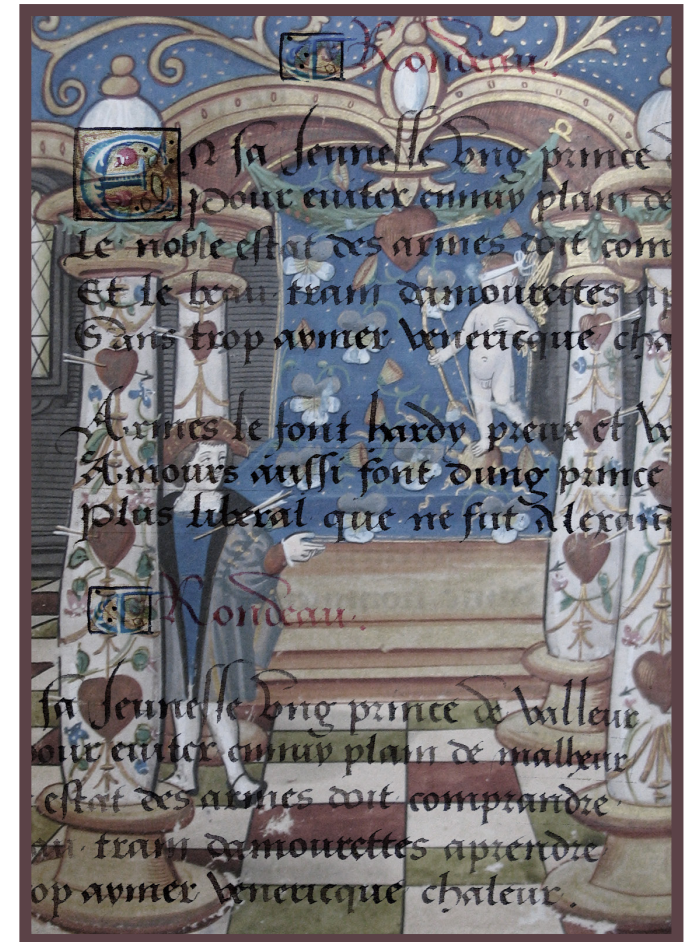 Rondeau.
En sa Jeunesse vng prince
Pour euiter ennuy plain de
Le noble estat des armes doit com
Et le beau train damourettes ap
Sans trop aymer venericque cha
Armes le font hardy preux et va
Amours aussi font dung prince
Plus liberal que ne fut Alexand
Rondeau.
sa Jeunesse vng prince de valleur
our euiter ennuy plain de malheur
estat des armes doit comprandre
au train damourettes aprendre
op aymer venericque chaleur.